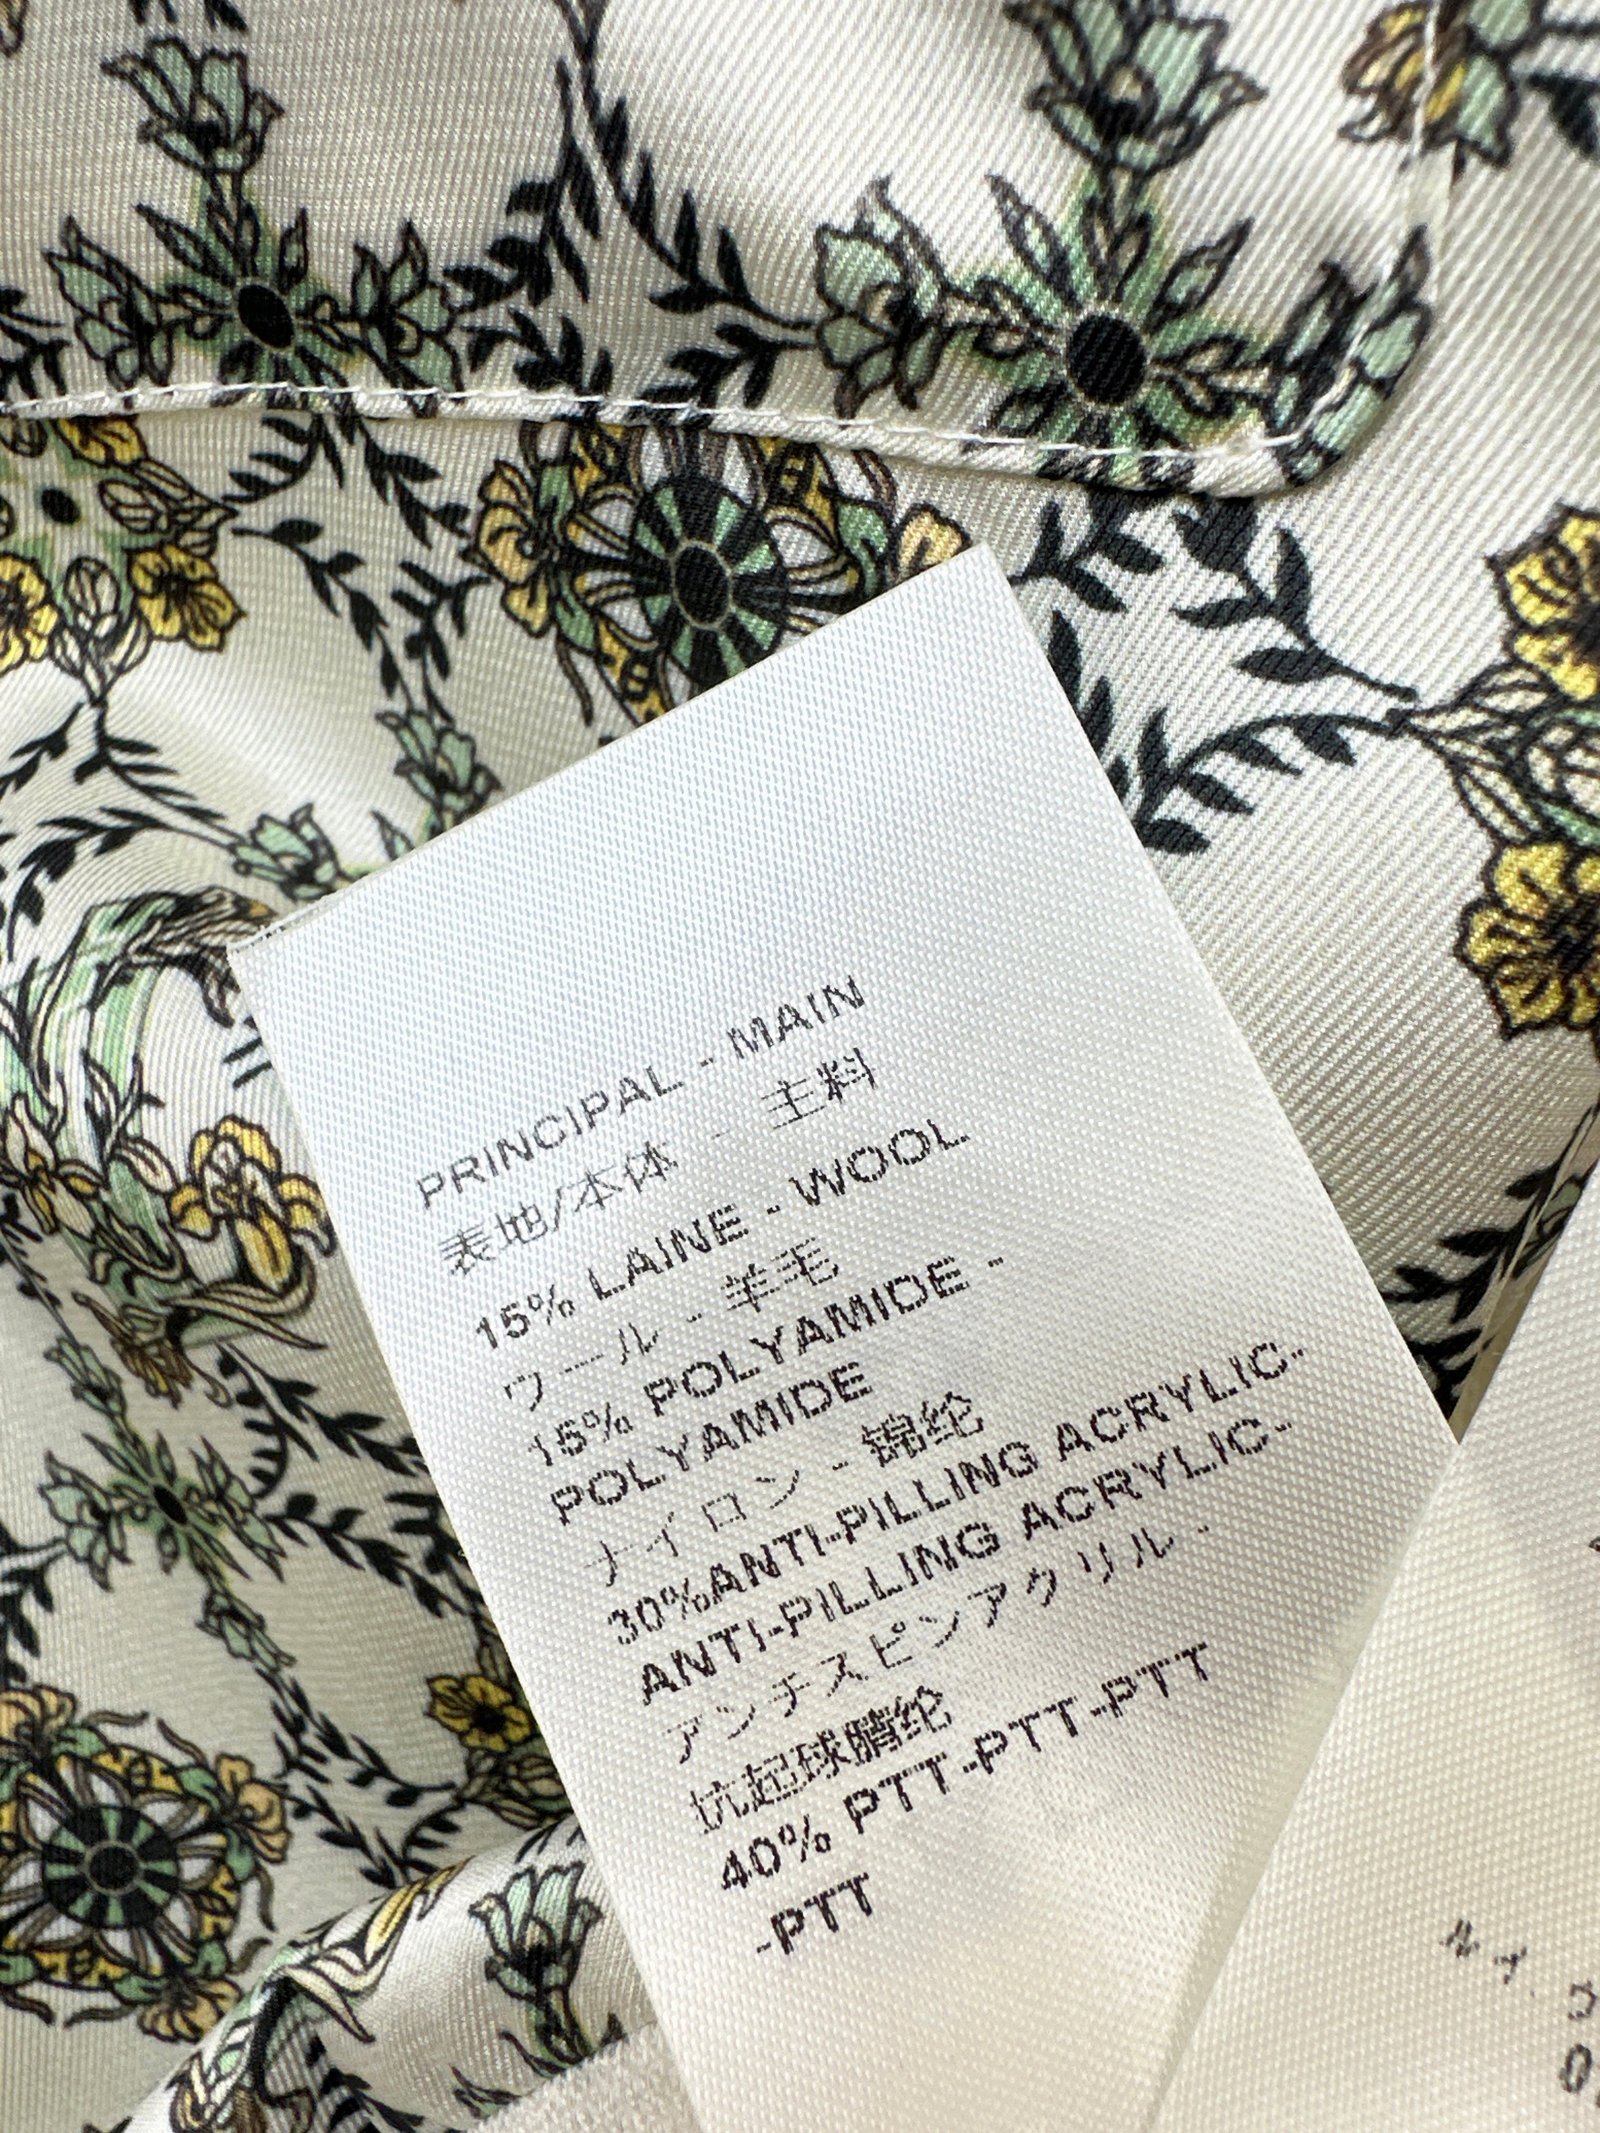 PRINCIPAL - MAIN
表地/本体 - 主料
15% LAINE - WOOL
ウール - 羊毛
15% POLYAMIDE -
POLYAMIDE
ナイロン - 锦纶
30%ANTI-PILLING ACRYLIC-
ANTI-PILLING ACRYLIC-
アンチスピンアクリル -
抗起球腈纶
40% PTT-PTT-PTT
-PTT